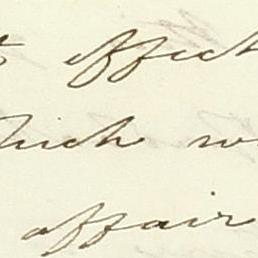 effect
which
affair